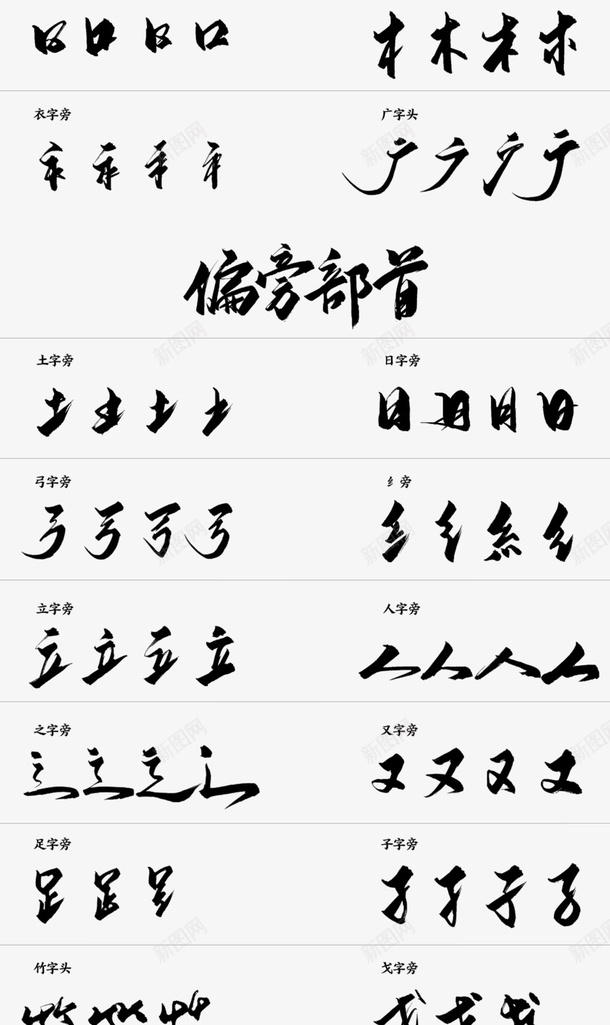 口 口 口 口 木 木 木 木
衣字旁 广字头
衤 衤 衤 衤 广 广 广 广
偏旁部首
土字旁 日字旁
土 土 土 土 日 日 日 日
弓字旁 纟旁
弓 弓 弓 弓 纟 纟 糹 纟
立字旁 人字旁
立 立 立 立 人 人 人 人
之字旁 又字旁
辶 辶 辶 辶 又 又 又 又
足字旁 子字旁
𧾷 𧾷 𧾷 子 子 子 子
竹字头 戈字旁
新图网